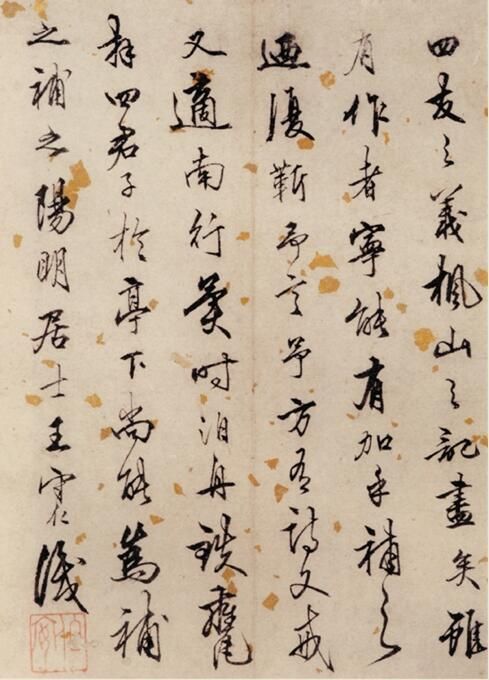 四友之義楓山之記盡矣雖
有作者寧能有加乎補之
迺復靳予言予方有詩文戒
又適南行異時泊舟鐵甕
拜四君子於亭下尚能為補
之補之陽明居士王守仁識